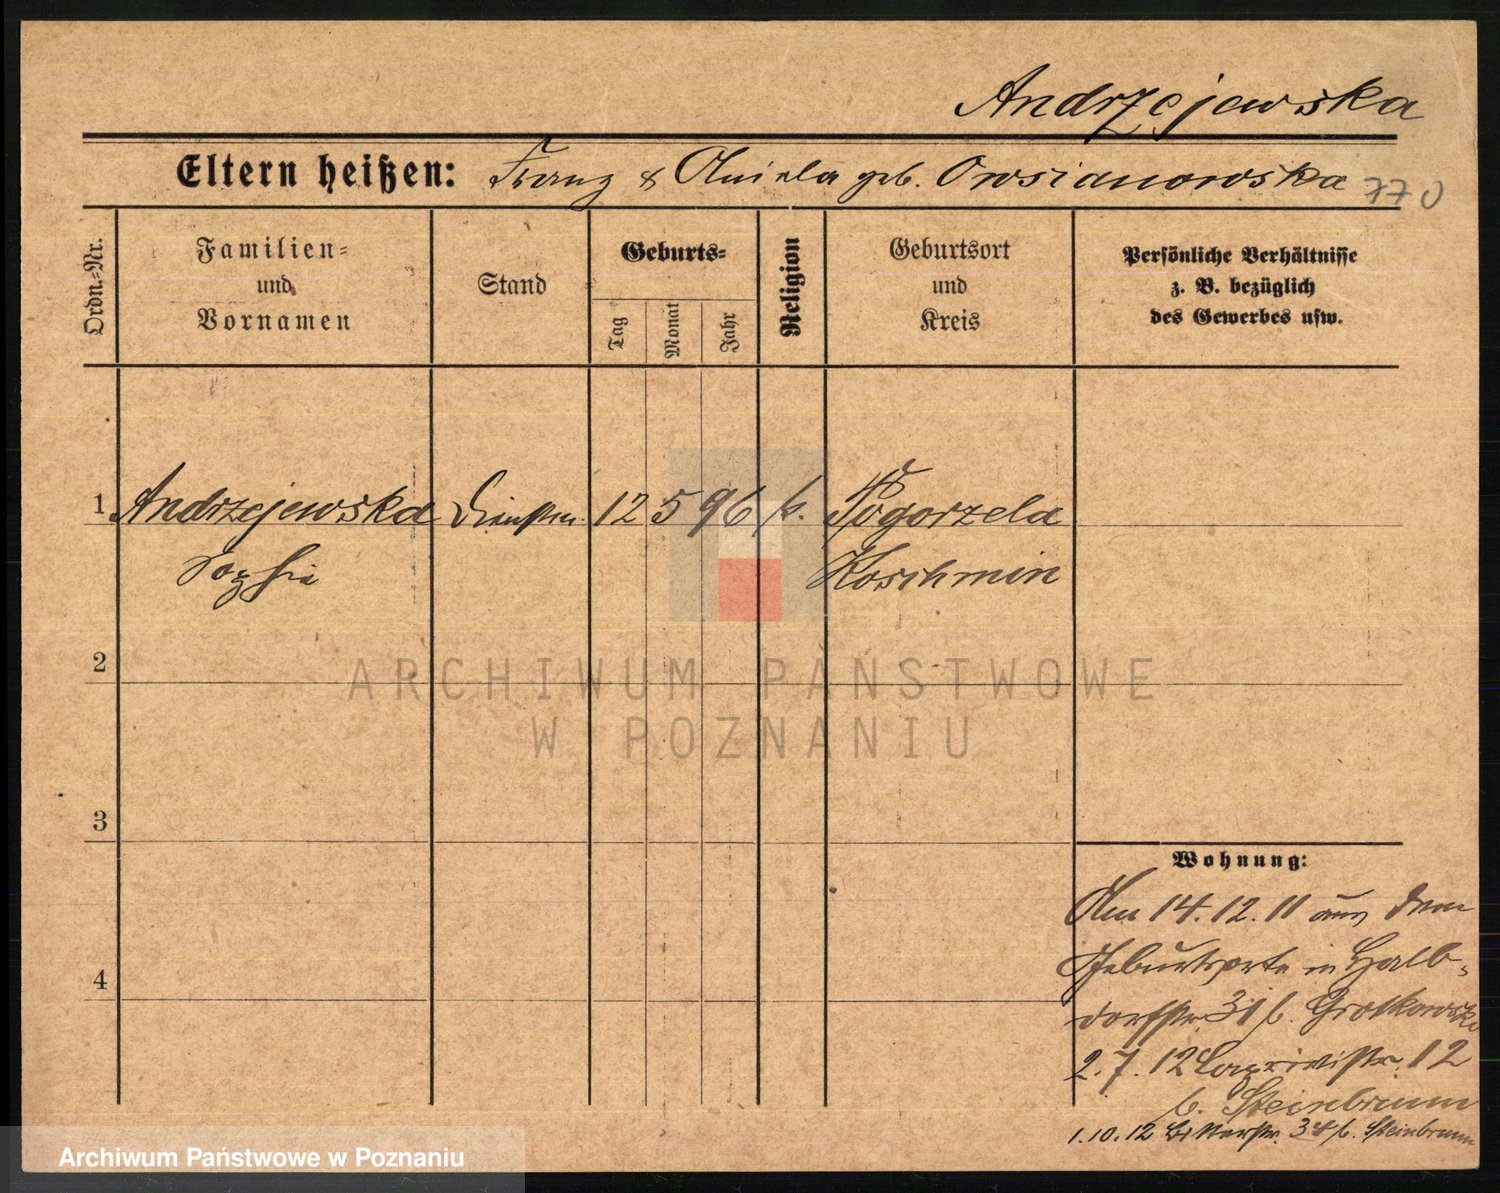 Andrzejewska
Eltern heißen: Franz & Aniela geb. Owsianowska 770
Ordn.-Nr.
Familien-
und
Vornamen
Stand
Geburts-
Tag
Monat
Jahr
Religion
Geburtsort
und
Kreis
Persönliche Verhältnisse
z. B. bezüglich
des Gewerbes usw.
1 Andrzejewska 12 5 96 k. Pogorzela
Sophie Koschmin
2
3
4
Wohnung:
Am 14.12.11 aus dem
Geburtsorte in Halb-
dorfstr. 31 b. Grotkowski
2.7.12 Caprivistr. 12
b. Steinbrunn
1.10.12 34 b. Steinbrunn
ARCHIWUM PAŃSTWOWE
W POZNANIU
Archiwum Państwowe w Poznaniu